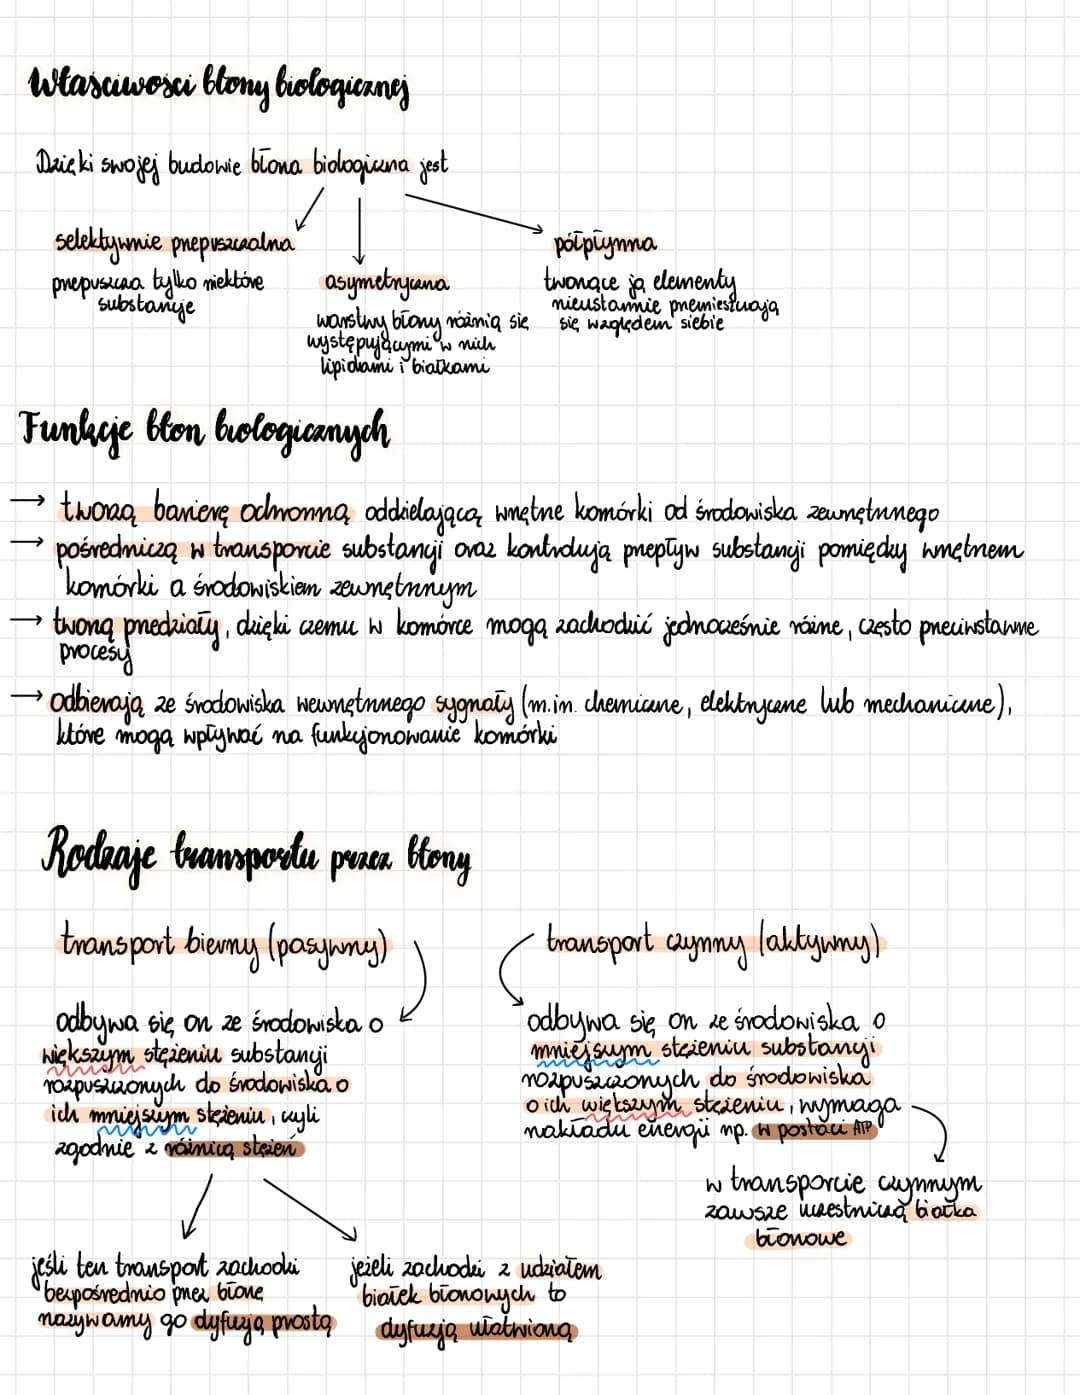 Właściwości błony biologicznej
Dzięki swojej budowie błona biologiczna jest
selektywnie przepuszczalna
przepuszcza tylko niektóre
substancje
asymetryczna
warstwy błony różnią się
występującymi w nich
lipidami i białkami
półpłynna
tworzące ją elementy
nieustannie przemieszczają
się względem siebie
Funkcje błon biologicznych
→ tworzą barierę ochronną oddzielającą wnętrze komórki od środowiska zewnętrznego
→ pośredniczą w transporcie substancji oraz kontrolują przepływ substancji pomiędzy wnętrzem
komórki a środowiskiem zewnętrznym
→ tworzą przedziały, dzięki czemu w komórce mogą zachodzić jednocześnie różne, często przeciwstawne
procesy
→ odbierają ze środowiska wewnętrznego sygnały (m.in. chemiczne, elektryczne lub mechaniczne),
które mogą wpływać na funkcjonowanie komórki
Rodzaje transportu przez błony
transport bierny (pasywny)
odbywa się on ze środowiska o
większym stężeniu substancji
rozpuszczonych do środowiska o
ich mniejszym stężeniu, czyli
zgodnie z różnicą stężeń
jeśli ten transport zachodzi
bezpośrednio przez błonę
nazywamy go dyfuzją prostą
jeżeli zachodzi z udziałem
białek błonowych to
dyfuzją ułatwioną
transport czynny (aktywny)
odbywa się on ze środowiska o
mniejszym stężeniu substancji
rozpuszczonych do środowiska
o ich większym stężeniu, wymaga
nakładu energii np. w postaci ATP
w transporcie czynnym
zawsze uczestniczą białka
błonowe